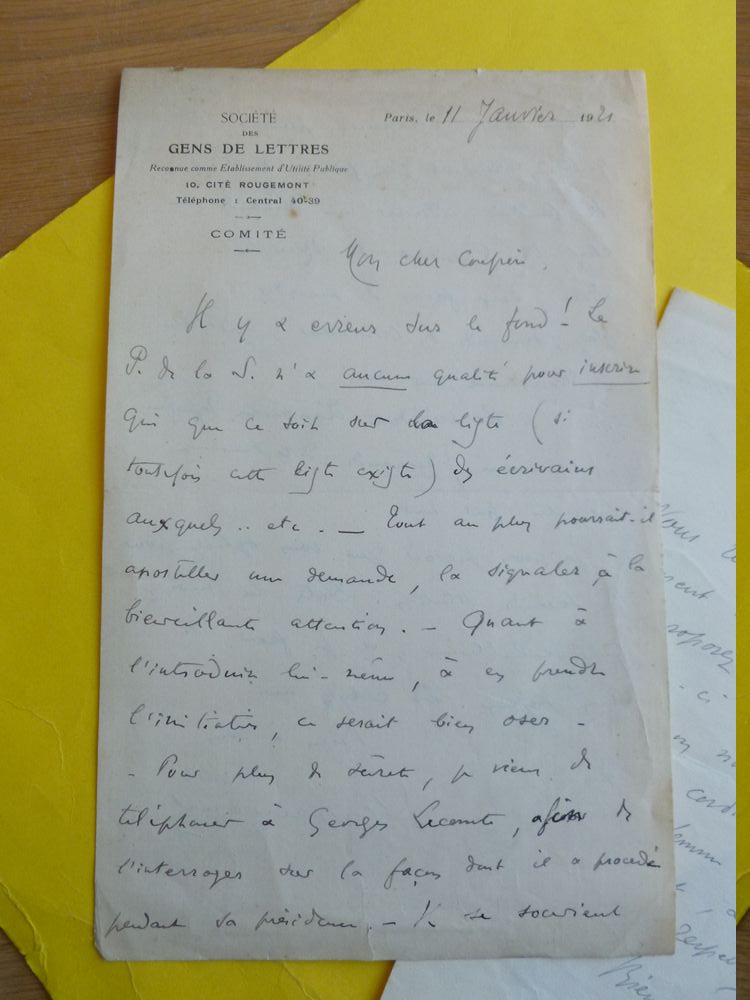 SOCIÉTÉ
DES
GENS DE LETTRES
Reconnue comme Etablissement d'Utilité Publique
10, CITÉ ROUGEMONT
Téléphone : Central 40-39
COMITÉ
Paris, le 11 Janvier 1921
Mon cher Confrère,
Il y a erreur sur le fond ! Le
P. de la S. n'a aucune qualité pour inscrire
qui que ce soit sur la liste (si
toutefois cette liste existe) des écrivains
auxquels .. etc. — Tout au plus pourrait-il
apostiller une demande, la signaler à la
bienveillante attention. — Quant à
l'introduire lui-même, à en prendre
l'initiative, ce serait bien oser -
- Pour plus de sûreté, je viens de
téléphoner à Georges Lecomte, afin de
l'interroger sur la façon dont il a procédé
pendant sa présidence. — Il se souvient
Vous
proposez
- ci